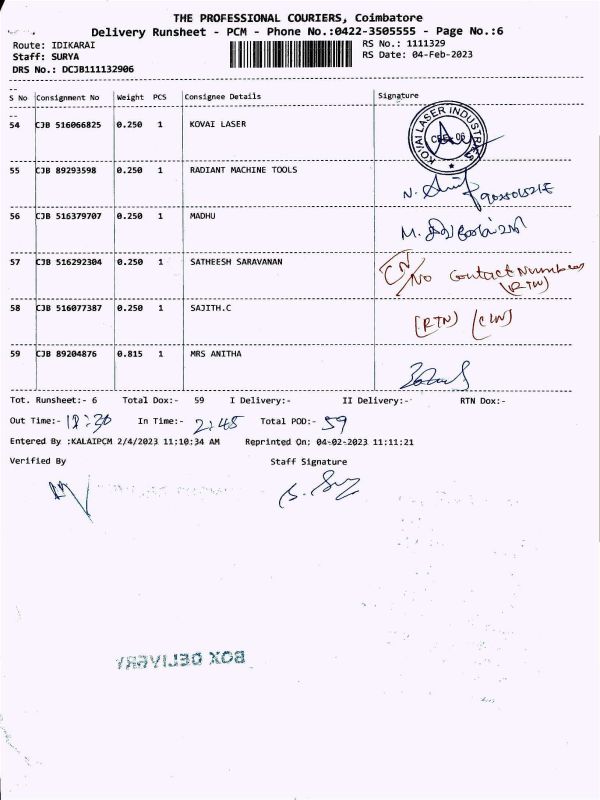 THE PROFESSIONAL COURIERS, Coimbatore
Delivery Runsheet - PCM - Phone No.:0422-3505555 - Page No.:6
Route: IDIKARAI RS No.: 1111329
Staff: SURYA RS Date: 04-Feb-2023
DRS No.: DCJB111132906
S No Consignment No Weight PCS Consignee Details Signature
54 CJB 516066825 0.250 1 KOVAI LASER KOVAI LASER INDUSTRIES
55 CJB 89293598 0.250 1 RADIANT MACHINE TOOLS
56 CJB 516379707 0.250 1 MADHU
57 CJB 516292304 0.250 1 SATHEESH SARAVANAN CN/No Contact Number (RTN)
58 CJB 516077387 0.250 1 SAJITH.C (RTN)
59 CJB 89204876 0.815 1 MRS ANITHA
Tot. Runsheet:- 6 Total Dox:- 59 I Delivery:- II Delivery:- RTN Dox:-
Out Time:- 12:30 In Time:- 2:45 Total POD:- 59
Entered By :KALAIPCM 2/4/2023 11:10:34 AM Reprinted On: 04-02-2023 11:11:21
Verified By Staff Signature
BOX DELIVERY